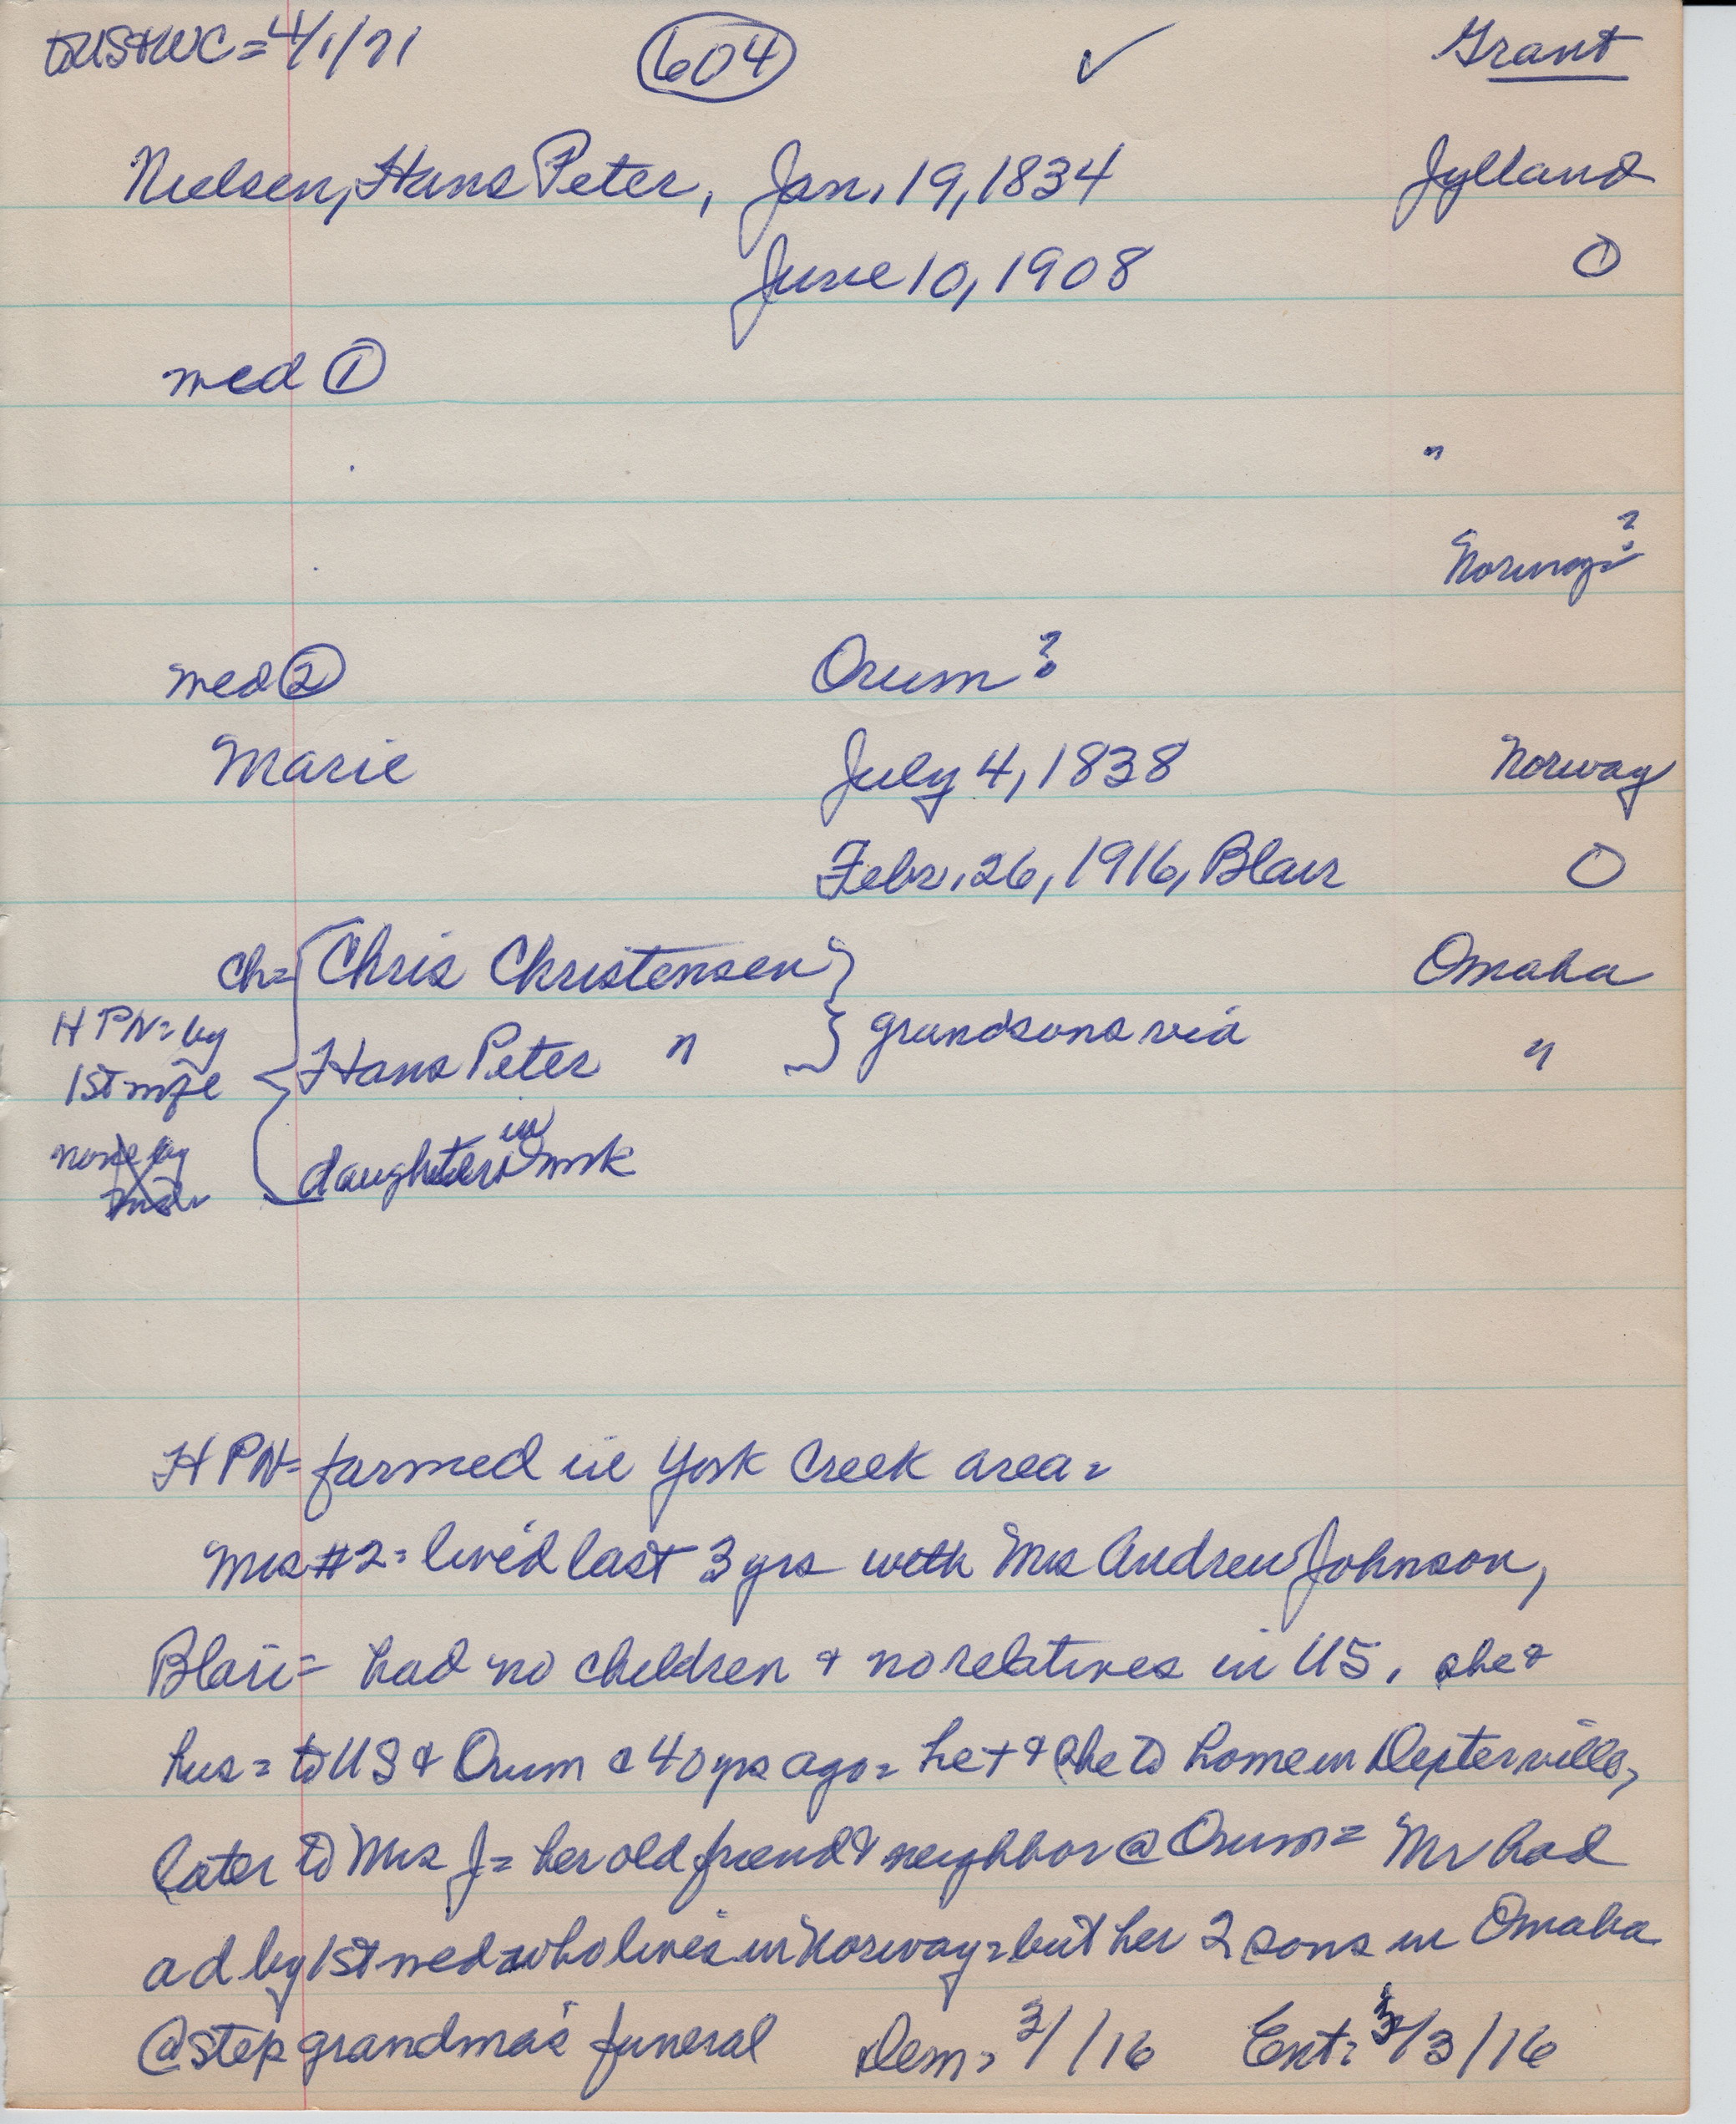 to US & WC = 4/1/71 604 ✓ Grant
Nielsen, Hans Peter, Jan. 19, 1834 Jylland
June 10, 1908 O
med ①
"
Norway?
med ② Orum?
Marie July 4, 1838 Norway
Febr. 26, 1916, Blair O
ch= Chris Christensen Omaha
HPN= by
Hans Peter " grandsons via "
1st wife
in
none by daughter nwk
HPN= farmed in York Creek area=
Mrs #2= lived last 3 yrs with Mrs Andrew Johnson,
Blair= had no children & no relatives in US, she &
hus = to US & Orum c 40 yrs ago= he + & she to home in Dexterville,
later to Mrs J= her old friend & neighbor @ Orum= Mr had
a d by 1st med who lives in Norway= but her 2 sons in Omaha
@ step grandma's funeral Dem= 3/ /16 Ent= 3/3/16